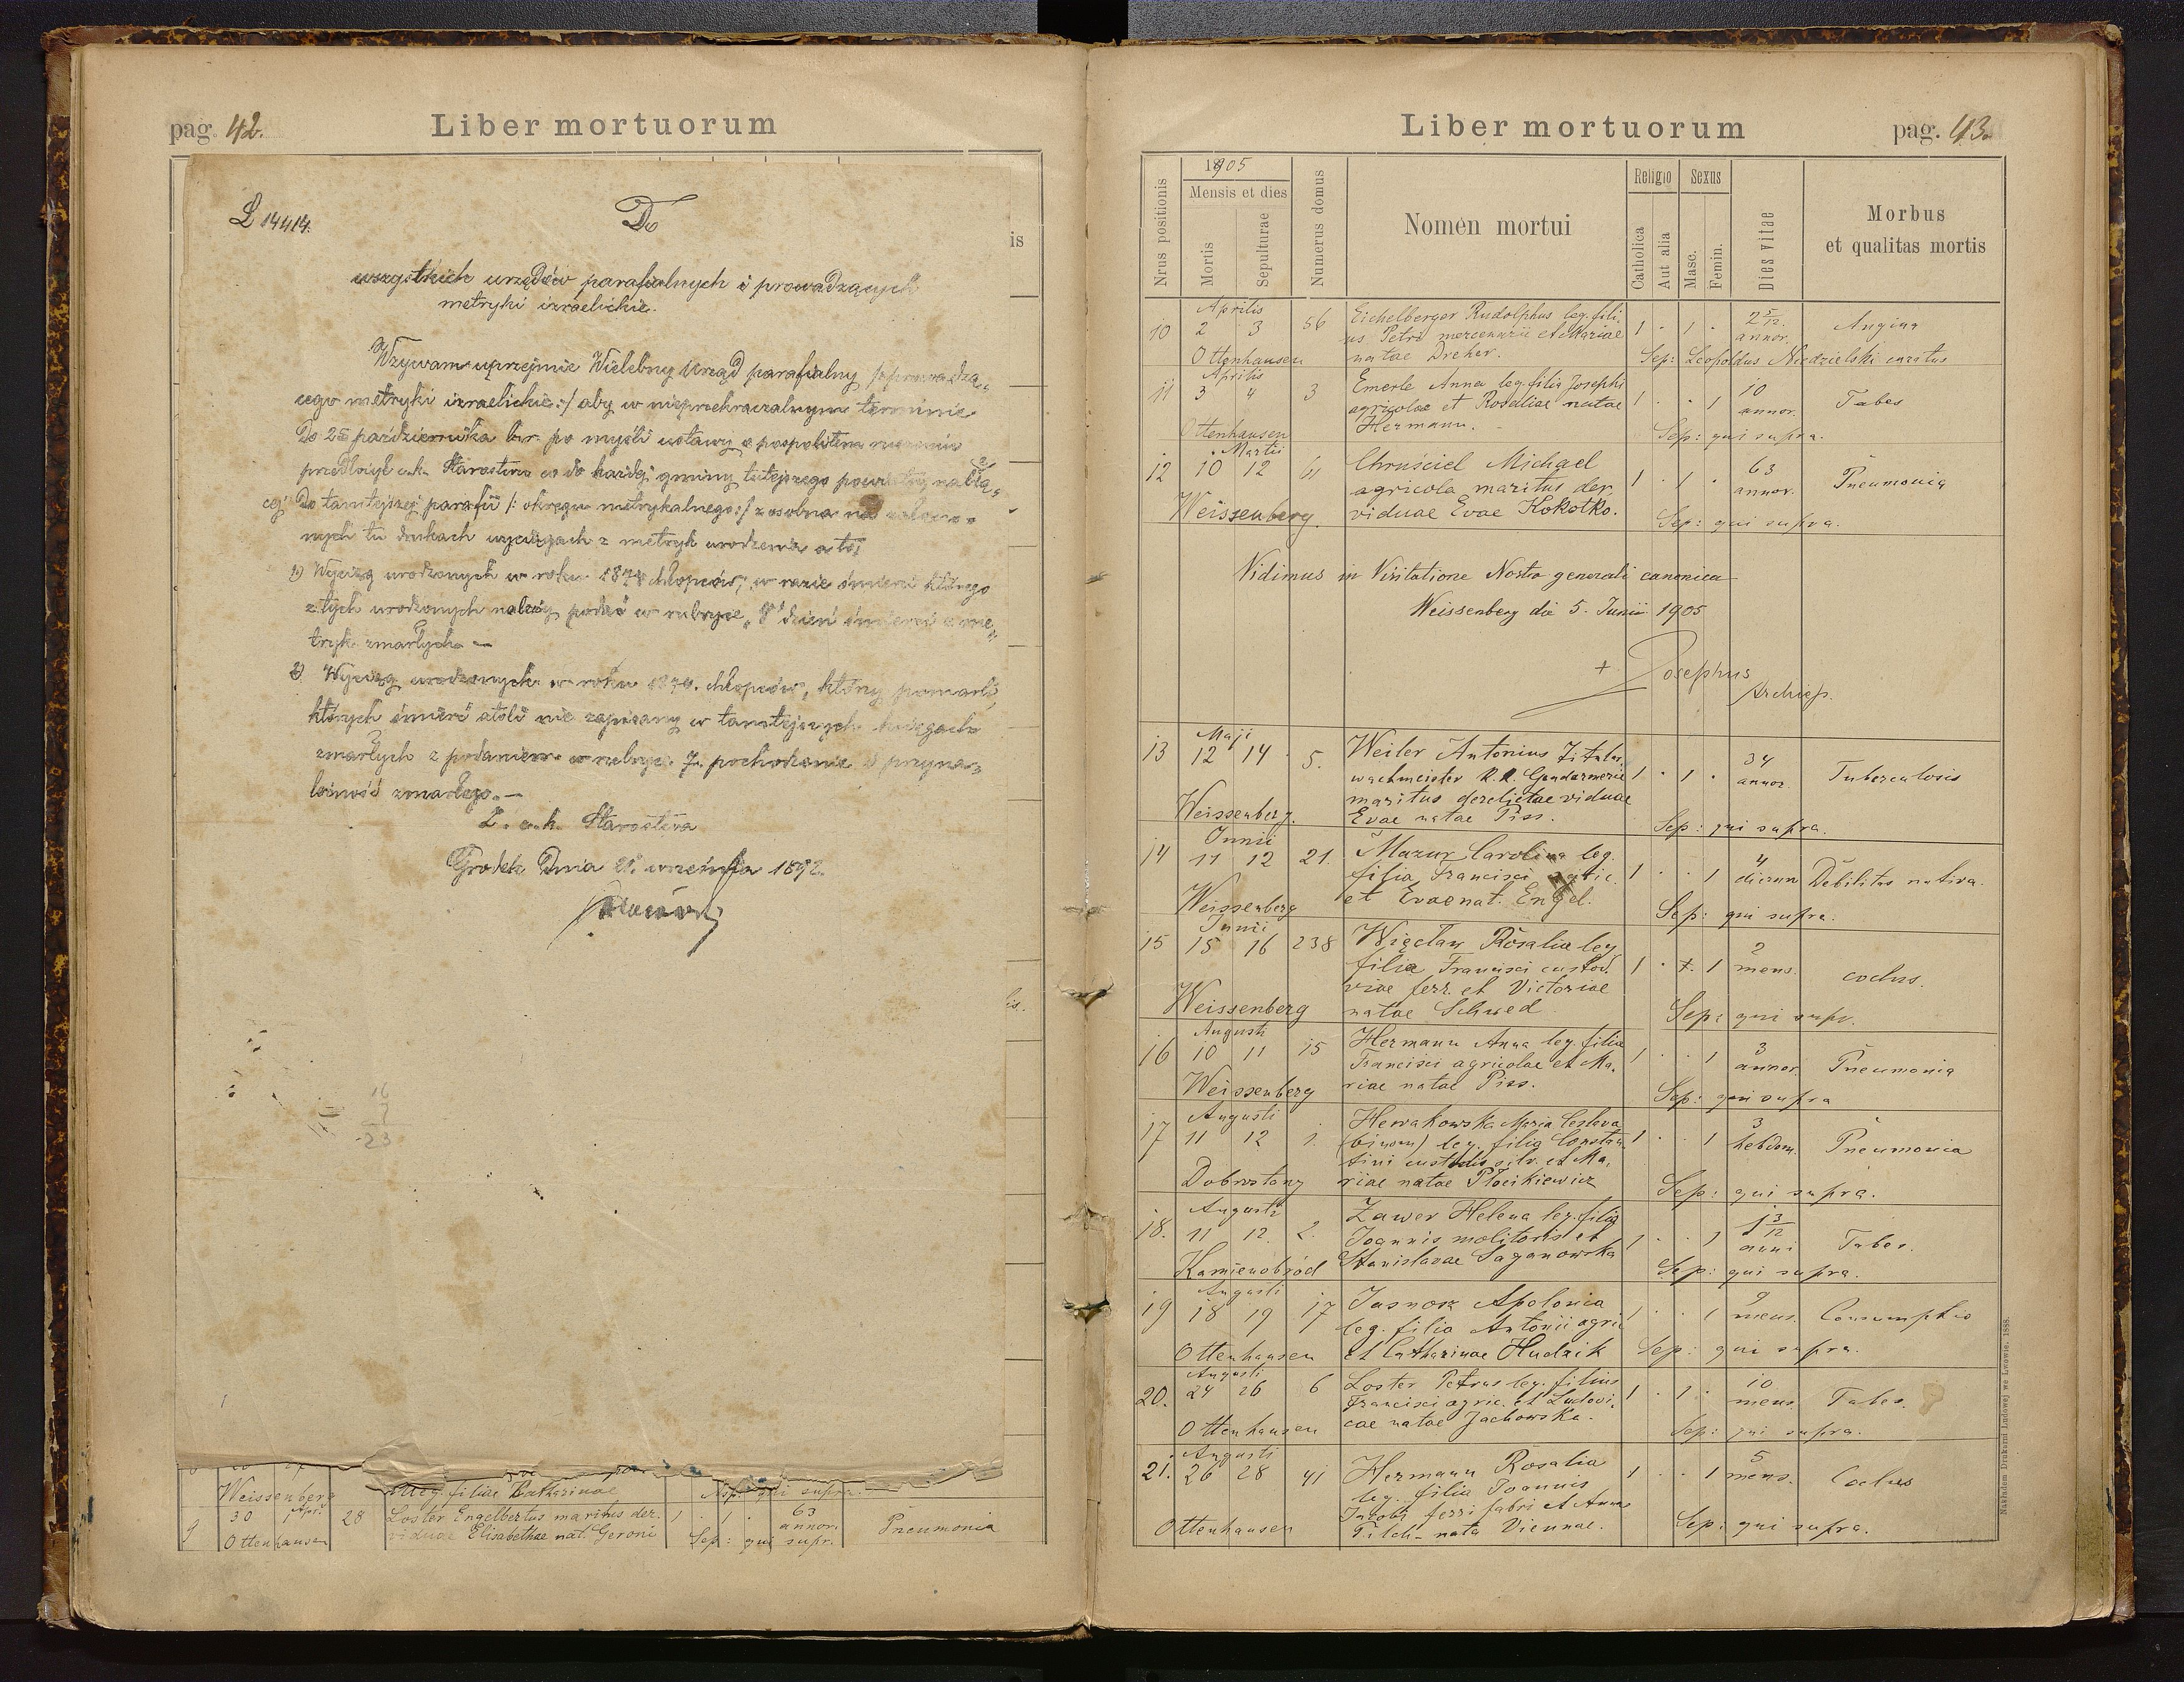 pag. 42.
Liber mortuorum
L 14414.
Do
wszystkich urzędów parafialnych i prowadzących
metryki izraelickie.
Wzywam uprzejmie Wielebny Urząd parafialny
cego metryki izraelickie:/ aby w nieprzekraczalnym terminie
Do 25 października br. po myśli ustawy o pospolitem ruszeniu
przedłożył c.k. Starostwu co do każdej gminy tutejszego powiatu
cej do tamtejszej parafii /: okręgu metrykalnego:/ z osobna na
nych tu drukach wyciągach z metryk urodzenia a to:
1) Wyciąg urodzonych w roku 1874 chłopców, w razie śmierci którego
z tych urodzonych należy podać w rubryce "8" dzień śmierci z me-
tryk zmarłych —
2) Wyciąg urodzonych w roku 1874. chłopców, którzy pomarli,
których śmierć atoli nie zapisany w tamtejszych księgach
zmarłych z podaniem w rubryce 7. pochodzenie i przyna-
leżność zmarłego. —
Z c.k. Starostwa
Gródek Dnia 21. września 1892.
is
lis.
16
7
23
Weissenberg
leg. filiae Catharinae
Sep: qui supra.
9
30 1 Apr.
28
Loster Engelbertus maritus der.
1 . 1 .
63 annor.
Pneumonia
Ottenhausen
viduae Elisabethae nat. Geroni
Sep: qui supr.
Liber mortuorum
pag. 43.
Nrus positionis
1905
Mensis et dies
Mortis
Sepulturae
Numerus domus
Nomen mortui
Religio
Catholica
Aut alia
Sexus
Masc.
Femin.
Dies vitae
Morbus
et qualitas mortis
Aprilis
10 2 3 56
Eichelberger Rudolphus leg. fili-
us Petri mercenarii et Mariae
natae Dreher.
1 . 1 .
2 5/12 annor.
Angina
Ottenhausen
Sep: Leopoldus Niedzielski curatus
Aprilis
11 3 4 3
Emerle Anna leg. filia Josephi
agricolae et Rosaliae natae
Hermann.
1 . . 1
10 annor.
Tabes
Ottenhausen
Sep: qui supra.
Martii
12 10 12 61
Chruściel Michael
agricola maritus der.
viduae Evae Kokotko.
1 . 1 .
63 annor.
Pneumonia
Weissenberg.
Sep: qui supra.
Vidimus in Visitatione Nostra generali canonica
Weissenberg die 5. Junii 1905
+ Josephus
Archiep.
Maji
13 12 14 5.
Weiler Antonius Titular.
wachmeister k.k. Gendarmerie
maritus derelictae viduae
Evae natae Piss.
1 . 1 .
34 annor.
Tuberculosis
Weissenberg.
Sep: qui supra.
Junii
14 11 12 21.
Mazur Carolina leg.
filia Francisci agric.
et Evae nat. Engel.
1 . . 1
4 dierum
Debilitas nativa.
Weissenberg
Sep: qui supra.
Junii
15 15 16 238
Więcław Rosalia leg.
filia Francisci custod.
viae ferr. et Victoriae
natae Schwed
1 . . 1
2 mens.
coclus.
Weissenberg
Sep: qui supr.
Augusti
16 10 11 15
Hermann Anna leg. filia
Francisci agricolae et Ma-
riae natae Piss.
1 . . 1
3 annor.
Pneumonia
Weissenberg
Sep: qui supra
Augusti
17 11 12 1.
Hewakowska Maria Ceslava
(binom) leg. filia Constan-
tini custodis silv. et Ma-
riae natae Płocikiewicz
1 . . 1
3 hebdom.
Pneumonia
Dobrostany
Sep: qui supra.
Augusti
18. 11 12. 2.
Zawer Helena leg. filia
Joannis molitoris et
Stanislavae Saganowska
1 . . 1
1 3/12 anni
Tabes.
Kamienobród
Sep: qui supra.
Augusti
19 18 19 17
Jasnosz Apolonia
leg. filia Antonii agric.
et Catharinae Hudzik
1 . . 1
9 mens.
Consumptio
Ottenhausen
Sep: qui supra.
Augusti
20. 24 26 6
Loster Petrus leg. filius
Francisci agric. et Ludovi-
cae natae Jachowska.
1 . 1 .
10 mens.
Tabes.
Ottenhausen
Sep: qui supra.
Augusti
21. 26 28 41
Hermann Rosalia
leg. filia Joannis
Jacobi ferri fabri et Annae
Pilch - nata Viennae.
1 . . 1
5 mens.
Coclus
Ottenhausen
Sep: qui supra.
Nakładem Drukarni Ludowej we Lwowie. 1888.